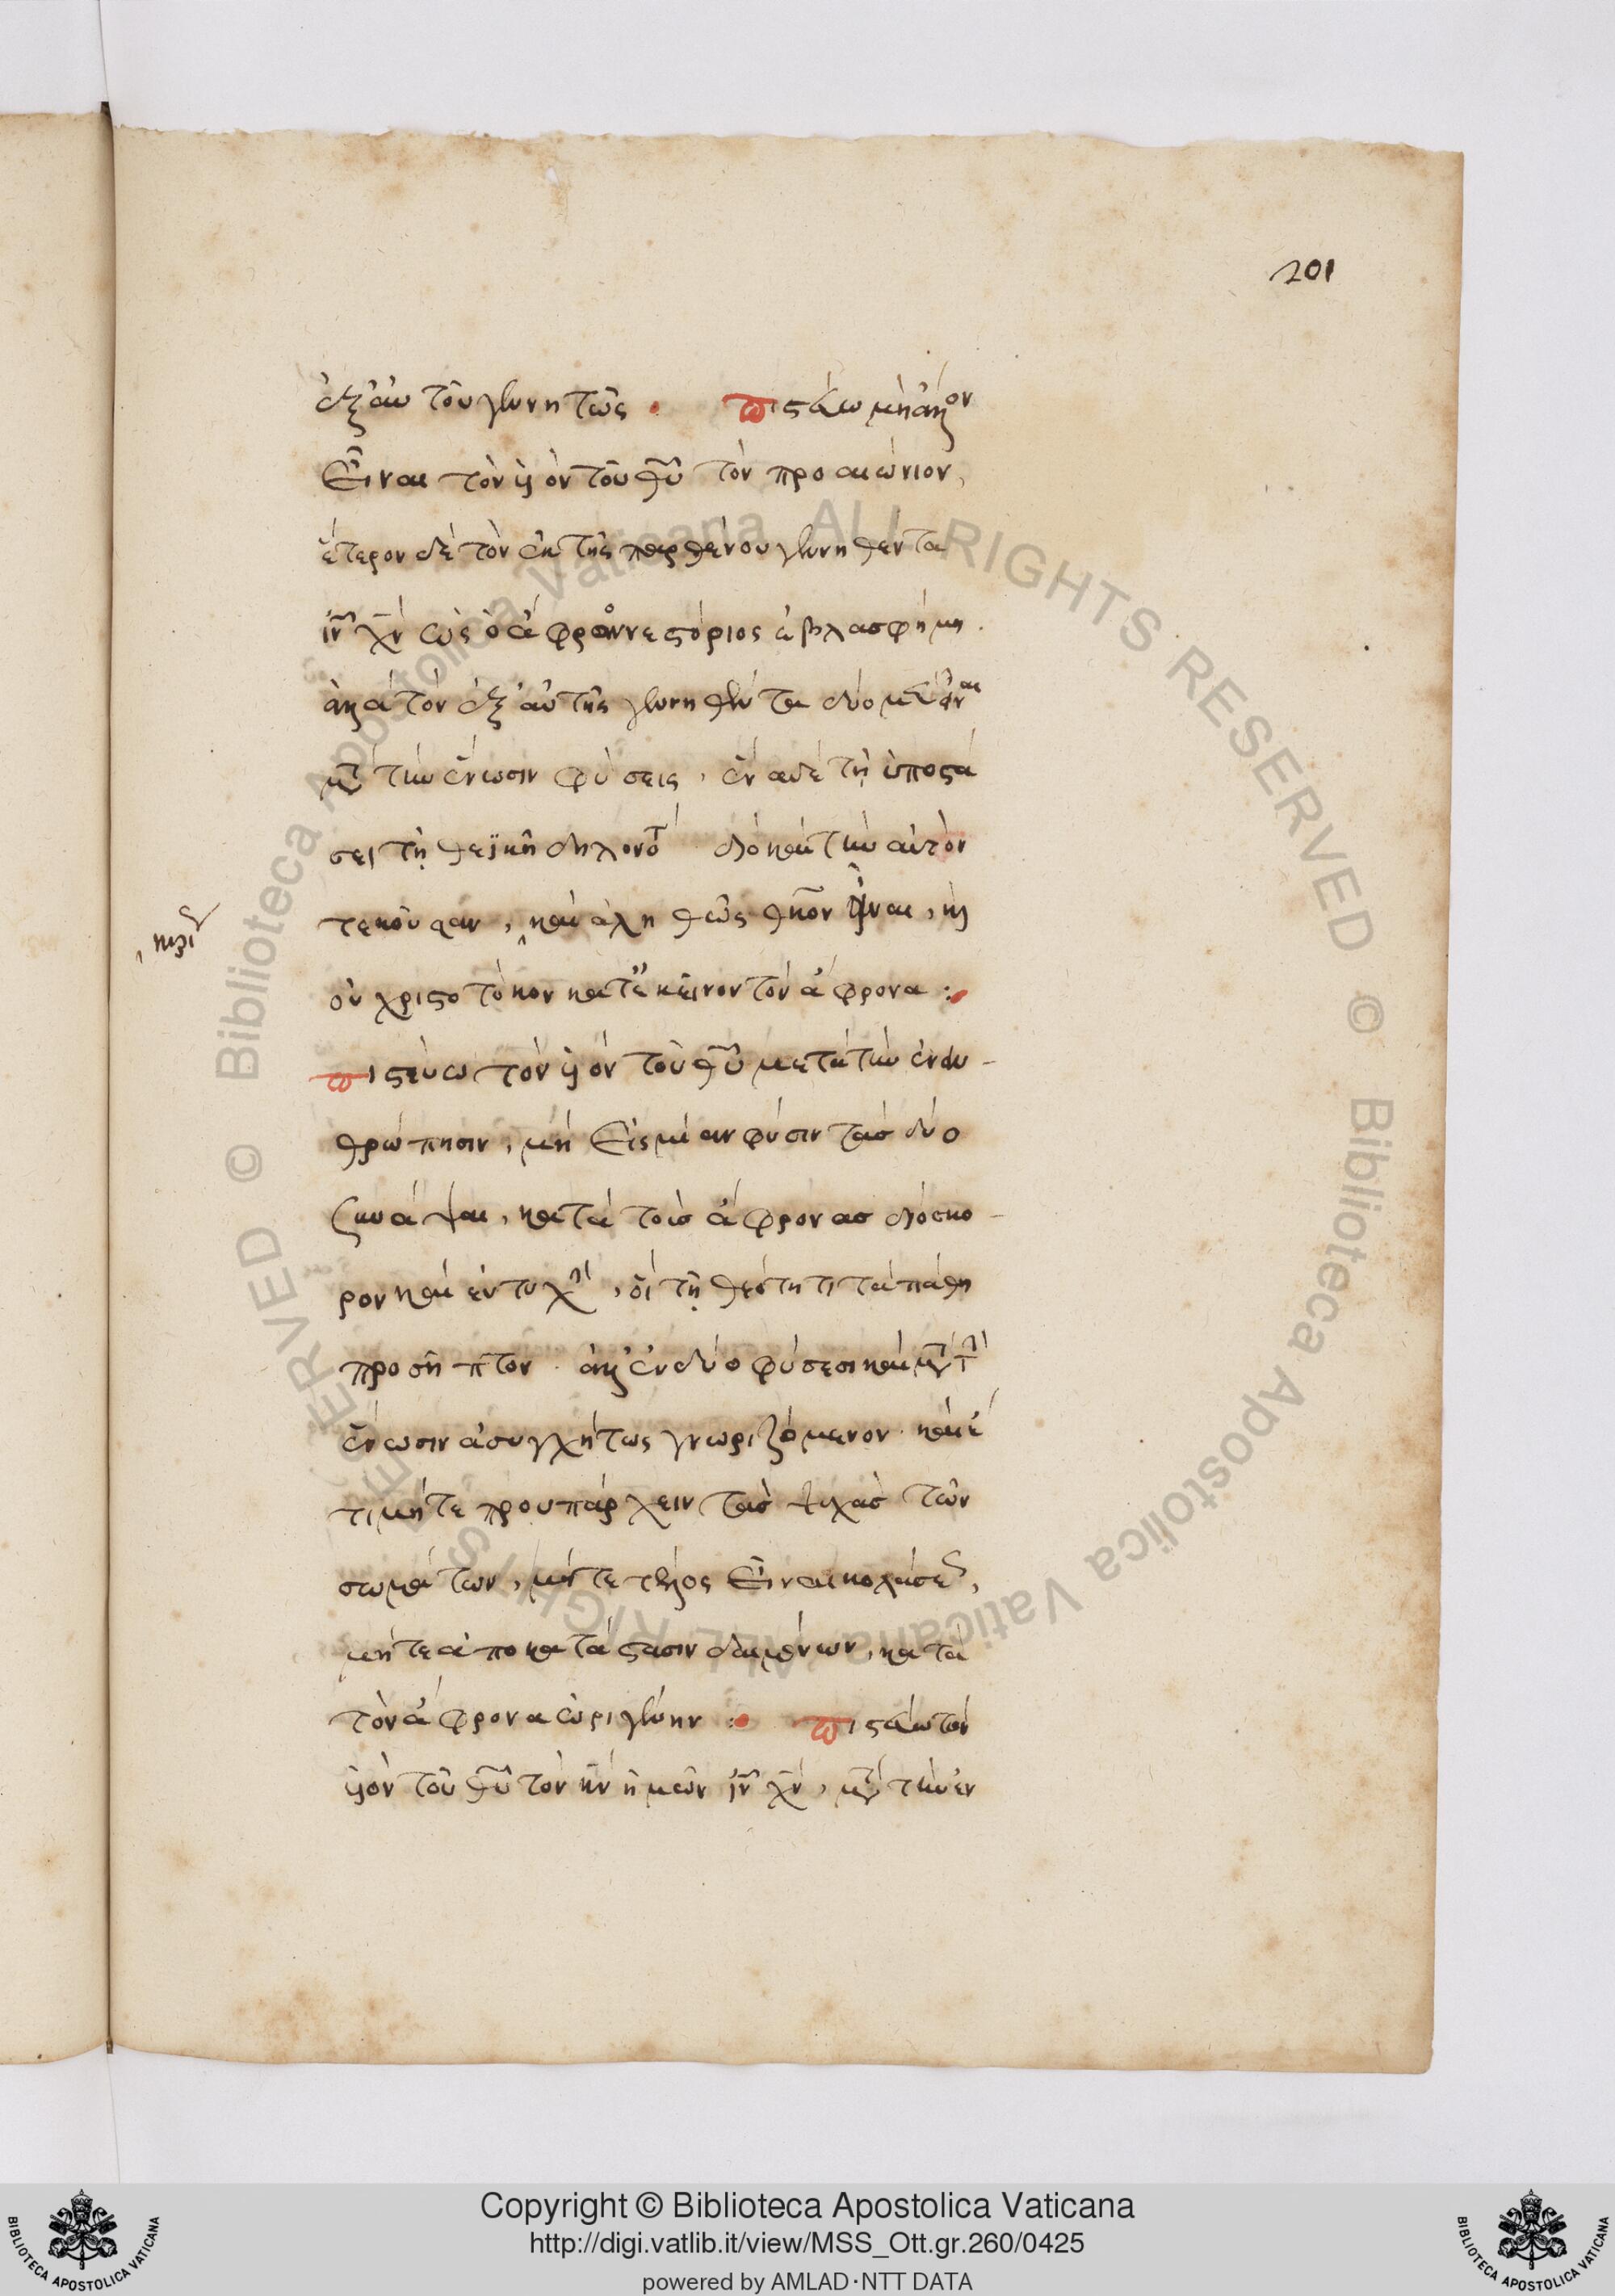 201
ἐξ αὐτοῦ γεννητῶς . πιστεύω μὴ ἄλλον
εἶναι τὸν υἱὸν τοῦ θυ τὸν προαιώνιον,
ἕτερον δὲ τὸν ἐκ τῆς παρθένου γεννηθέντα
ιν χν ὡς ὁ ἄφρων νεστόριος ἐβλασφήμη .
ἀλλὰ τὸν ἐξ αὐτῆς γεννηθέντα δύο μὲν εἶναι
μετὰ τὴν ἕνωσιν φύσεις, ἕνα δὲ τῇ ὑποστά
σει τῇ θεϊκῇ δηλονότι διὸ καὶ τὴν αὐτὸν
τεκοῦσαν, καὶ ἀληθῶς θκον εἶναι, καὶ
οὐ χριστοτόκον κατ' ἐκεῖνον τὸν ἄφρονα :
πιστεύω τὸν υἱὸν τοῦ θυ μετὰ τὴν ἐναν-
θρώπησιν, μὴ εἰς μίαν φύσιν τὰς δύο
συνάψαι, κατὰ τοὺς ἄφρονας διόσκο-
ρον καὶ εὐτυχῆ, οἳ τῇ θεότητι τὰ πάθη
προσῆπτον . ἀλλ' ἐν δύο φύσεσι καὶ μετὰ τὴν
ἕνωσιν ἀσυγχήτως γνωριζόμενον . καὶ ἔ
τι μήτε προυπάρχειν τὰς ψυχὰς τῶν
σωμάτων, μήτε τέλος εἶναι κολάσεως,
μήτε ἀποκατάστασιν δαιμόνων, κατὰ
τὸν ἄφρονα ὠριγένην : πιστεύω τὸν
υἱὸν τοῦ θυ τὸν κν ἡμῶν ιν χν, μετὰ τὴν ἐν
Copyright © Biblioteca Apostolica Vaticana
http://digi.vatlib.it/view/MSS_Ott.gr.260/0425
powered by AMLAD·NTT DATA
BIBLIOTECA APOSTOLICA VATICANA
BIBLIOTECA APOSTOLICA VATICANA
Biblioteca Apostolica Vaticana ALL RIGHTS RESERVED © Biblioteca Apostolica Vaticana ALL RIGHTS RESERVED ©